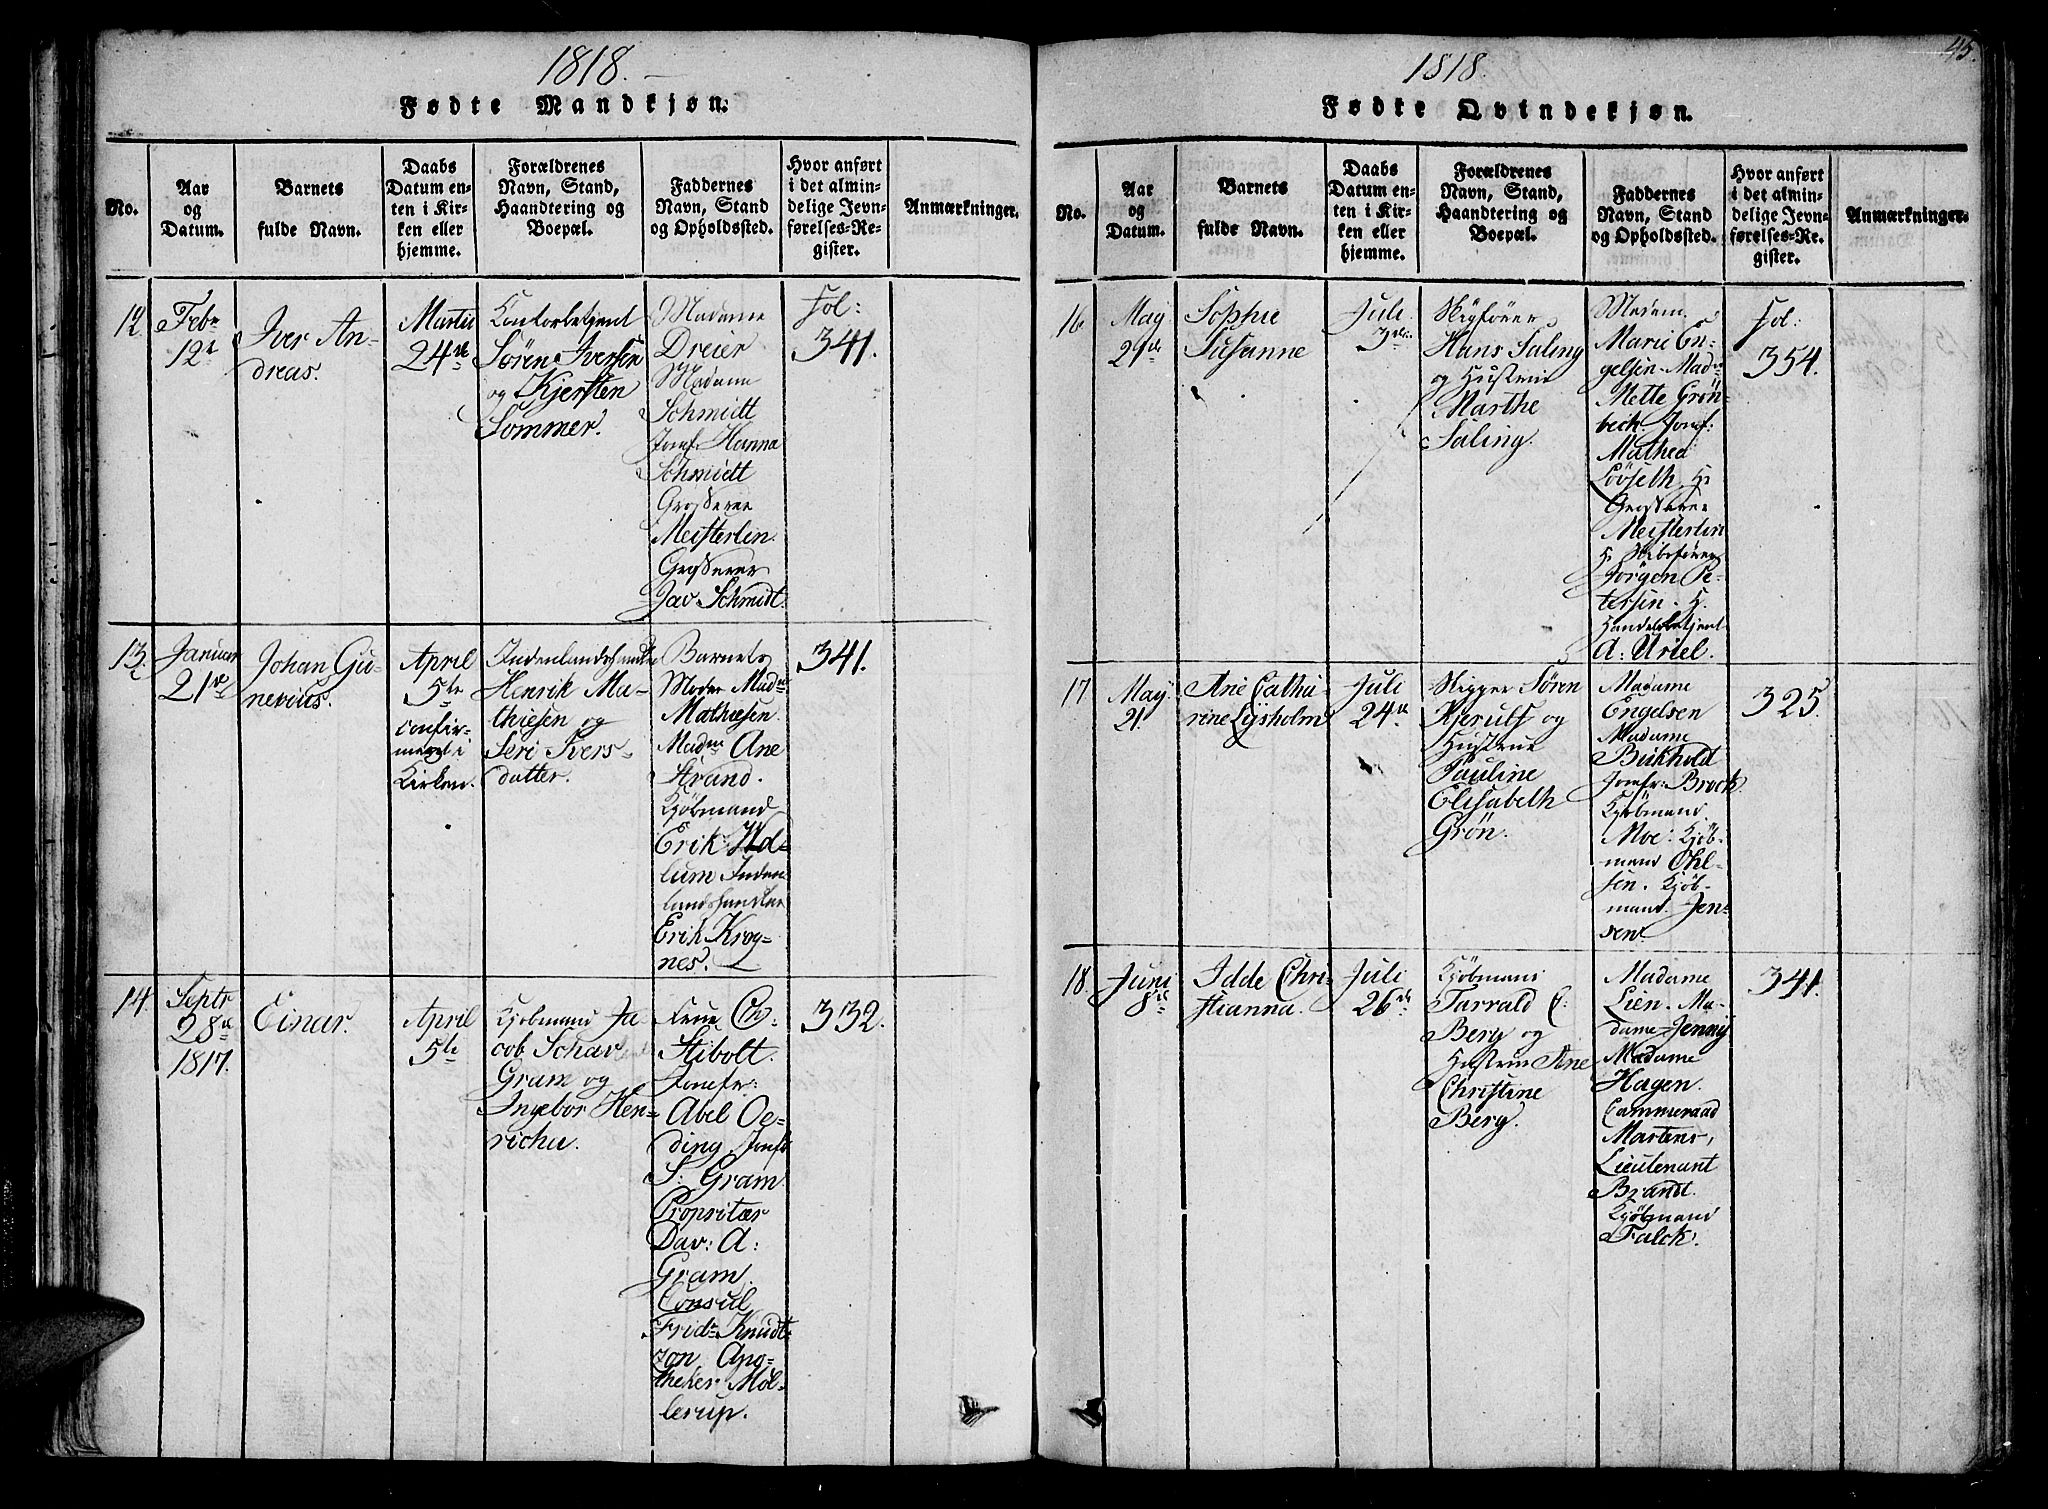 1818.
Fødte Mandkjøn:
No.
Aar
og
Datum.
Barnets
fulde Navn.
Daabs
Datum en-
ten i Kir-
ken eller
hjemme.
Forældrenes
Navn, Stand,
Haandtering og
Boepæl.
Faddernes
Navn, Stand
og Opholdssted.
Hvor anført
i det almin-
delige Jevn-
førelses-Re-
gister.
Anmærkninger.
12.
Febr
12te
Iver An-
dreas.
Martii
24de
Contorbetjent
Søren Iversen
og Kjersten
Sommer.
Madame
Dreier
Madame
Schmidt
Jomf. Hanna
Schmidt
Grosserer
Meisterlin.
Grosserer
Jav. Schmidt.
Fol:
341.
13.
Januar
21de
Johan Gu-
nerius.
April
5te
confir-
meret i
Kirken.
Indenlandshandler
Henrik Ma-
thiesen og
Seri Ivers-
datter.
Barnets
Moder Madme
Mathiesen.
Madme Ane
Strand.
Kjøbmand
Erik
lum Inden
landshandler
Erik Krog-
nes.
341.
14.
Septr
28de
1817.
Einar.
April
5te
Kjøbmand Ja
cob Schav
Gram og
Ingebor Hen-
richa.
Frue
Stibolt.
Jomfr:
Abel Oe-
ding, Jomfr
S: Gram.
Propritær
Dav: A:
Gram.
Consul
Fridr Knudt-
zon, Apo-
theker Møl-
lerup.
332.
45.
1818.
Fødte Qvindekjøn.
No.
Aar
og
Datum.
Barnets
fulde Navn.
Daabs
Datum en-
ten i Kir-
ken eller
hjemme.
Forældrenes
Navn, Stand,
Haandtering og
Boepæl.
Faddernes
Navn, Stand
og Opholdssted.
Hvor anført
i det almin-
delige Jevn-
førelses-Re-
gister.
Anmærkninger.
16.
May
21de
Sophie
Susanne
Juli
3die
Hans Saling
og Hustrue
Marthe
Saling.
Madam
Marie En-
gelsen. Madm
Mette Grøn-
beck. Jomf:
Mathea
Løvseth, Hr
Grosserer
Meisterlin
H Skibsfører
Jørgen Pe-
tersen. H.
Handelsbetjent
A: Uriel.
Fol:
354.
17.
May
21.
Ane Catha-
rine Lysholm
Juli
24de
Skipper Søren
Kjerulf og
Hustrue
Pauline
Elisabeth
Grøn.
Madame
Engelsen
Madame
Bukhold
Jomfr: Brock.
Kjøbmand
Moe: Kjøb-
mand Ohl-
sen. Kjøb-
mand Jen-
sen.
325.
18.
Juni
8de
Idde Chri-
stianna.
Juli
26de
Kjøbmand
Tarrald C:
Berg og
Hustrue Ane
Christine
Berg.
Madame
Lien. Ma-
dame Jenny
Madame
Hagen.
Cammeraad
Martens,
Lieutenant
Brandt.
Kjøbmand
Falck.
341.